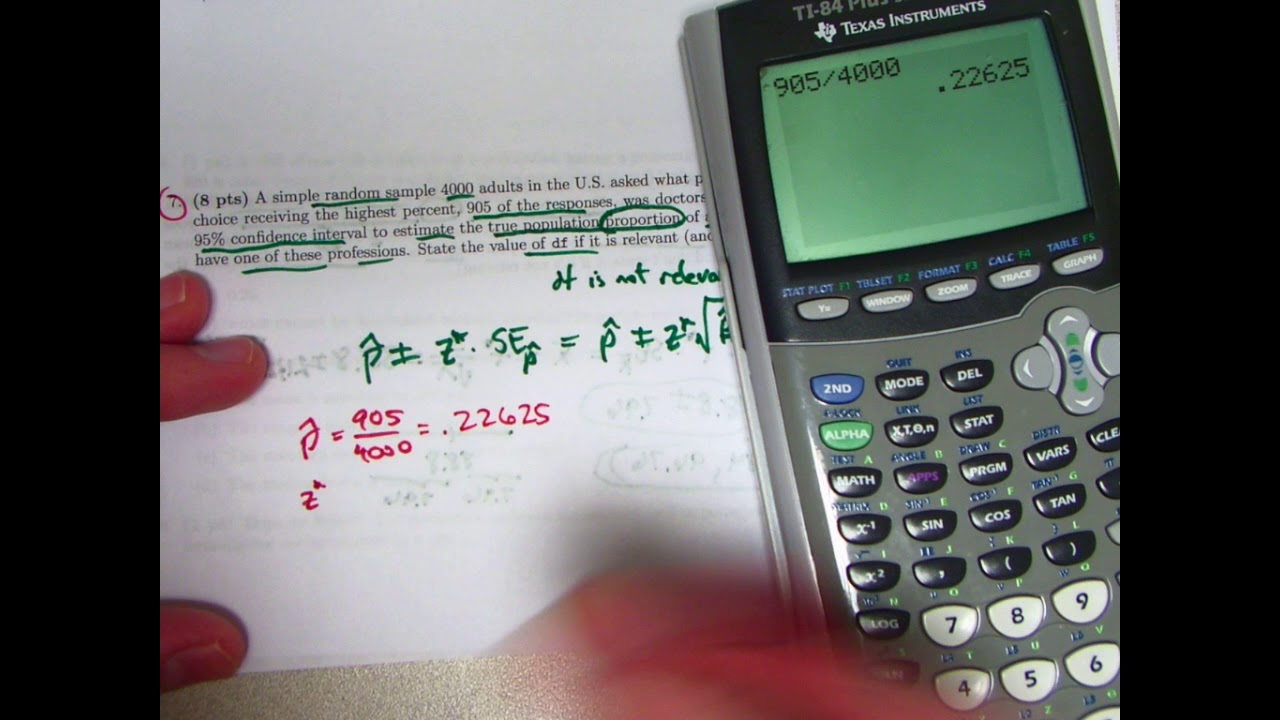 7. (8 pts) A simple random sample 4000 adults in the U.S. asked what
choice receiving the highest percent, 905 of the responses, was doctors
95% confidence interval to estimate the true population proportion of
have one of these professions. State the value of df if it is relevant
df is not
p̂ ± z* · SE_p̂ = p̂ ± z*√
p̂ = 905/4000 = .22625
z*
TI-84 Plus
TEXAS INSTRUMENTS
905/4000
.22625
STAT PLOT F1 TBLSET F2 FORMAT F3 CALC F4 TABLE F5
Y= WINDOW ZOOM TRACE GRAPH
QUIT INS
2ND MODE DEL
A-LOCK LINK LIST
ALPHA X,T,θ,n STAT
TEST A ANGLE B DRAW C DISTR
MATH APPS PRGM VARS
MATRIX D SIN⁻¹ E COS⁻¹ F TAN⁻¹ G π
x⁻¹ SIN COS TAN
x² , ( )
LOG 7 8 9
4 5 6